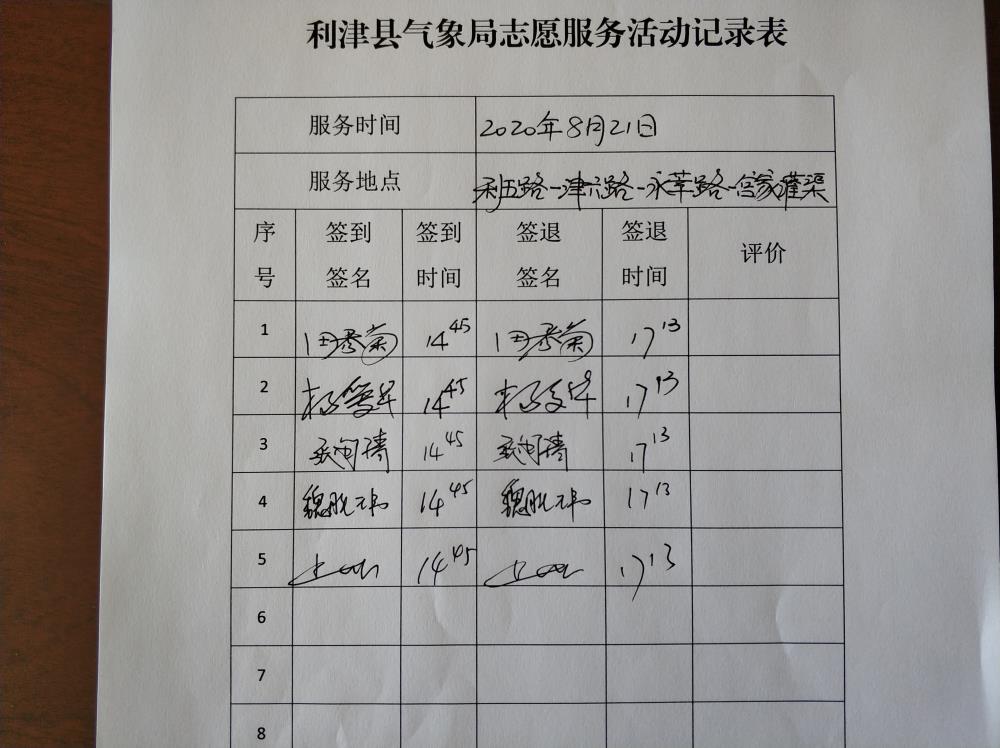 利津县气象局志愿服务活动记录表
服务时间 2020年8月21日
服务地点 利五路-津六路-永莘路-宫家灌渠
序号 签到签名 签到时间 签退签名 签退时间 评价
1 田秀菊 14 45 田秀菊 17 13
2 14 45 17 13
3 14 45 17 13
4 14 45 17 13
5 14 45 17 13
6
7
8